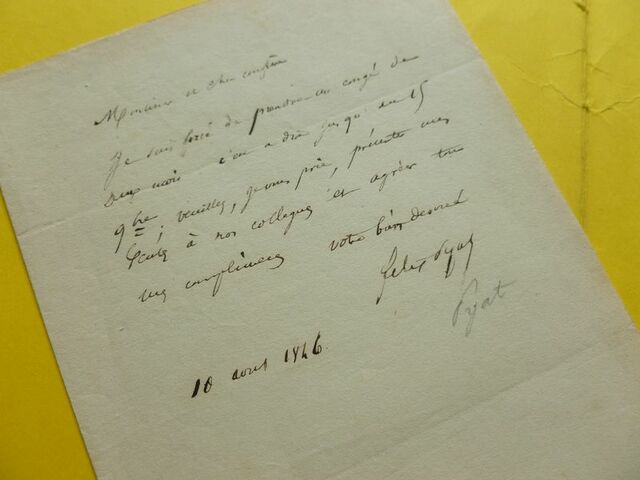 Monsieur et cher confrère
Je suis forcé de prendre un congé de
deux mois c'est à dire jusqu'au 15
9bre ; veuillez, je vous prie, présenter mes
à nos collègues et agréer tous
mes compliments votre bien dévoué
Felix Pyat
Pyat
10 aout 1846.